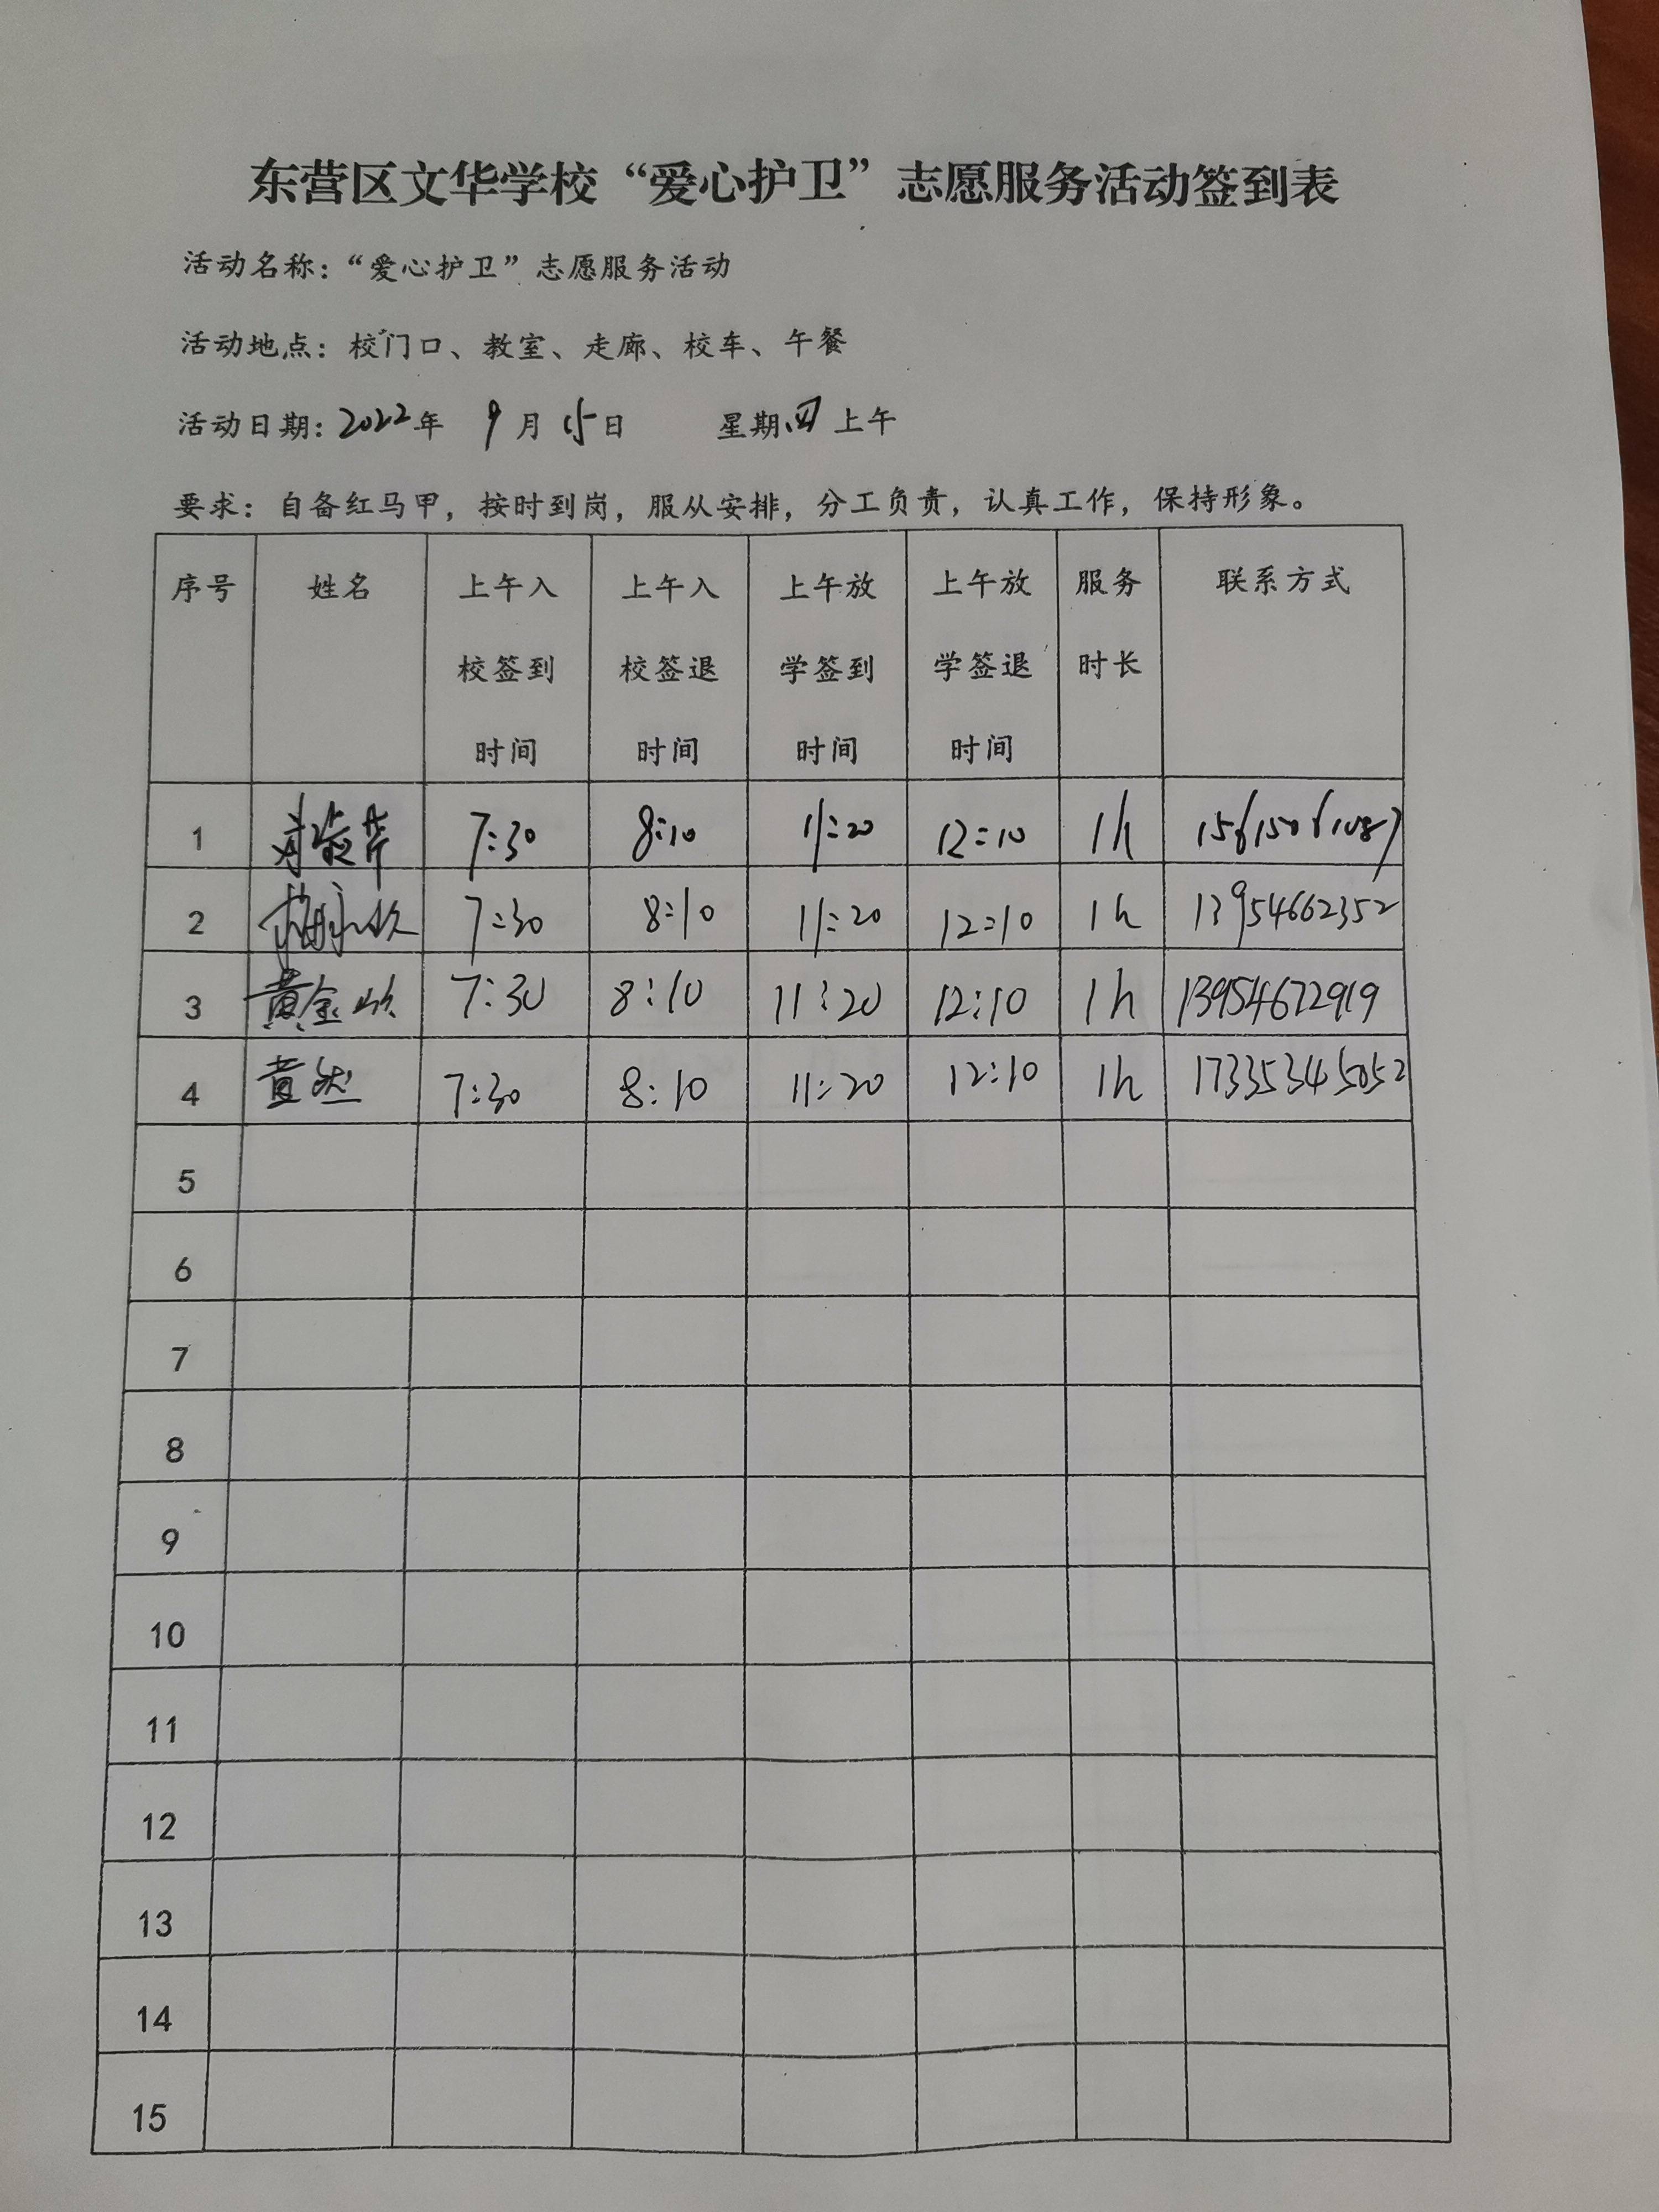 东营区文华学校“爱心护卫”志愿服务活动签到表
活动名称：“爱心护卫”志愿服务活动
活动地点：校门口、教室、走廊、校车、午餐
活动日期：2022年 9月15日 星期四上午
要求：自备红马甲，按时到岗，服从安排，分工负责，认真工作，保持形象。
序号 姓名 上午入校签到时间 上午入校签退时间 上午放学签到时间 上午放学签退时间 服务时长 联系方式
1 7:30 8:10 11:20 12:10 1h 15615061087
2 7:30 8:10 11:20 12:10 1h 13954662352
3 黄金 7:30 8:10 11:20 12:10 1h 13954672919
4 黄然 7:30 8:10 11:20 12:10 1h 17335345052
5
6
7
8
9
10
11
12
13
14
15